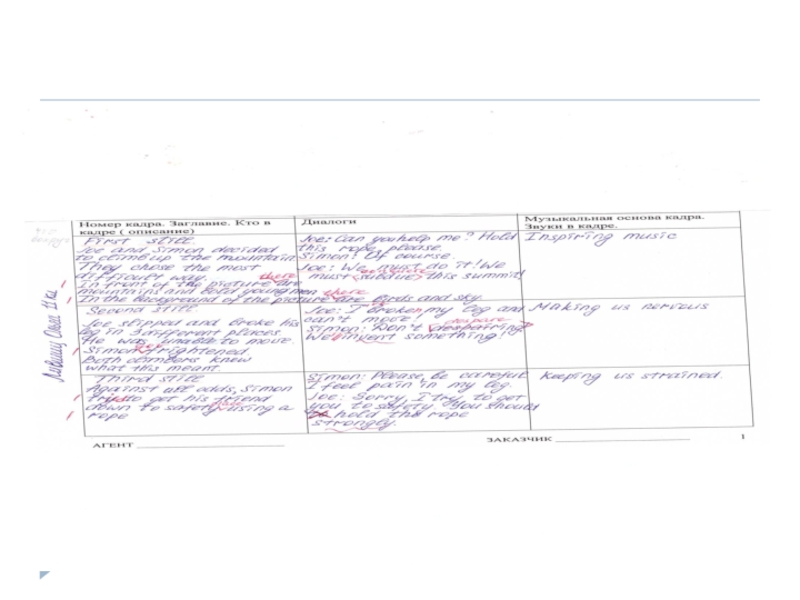 Номер кадра. Заглавие. Кто в
кадре ( описание)
Диалоги
Музыкальная основа кадра.
Звуки в кадре.
First still
Joe and Simon decided
to climb up the mountain
They chose the most
difficult way.
there
In front of the picture are
mountains and bold young men
there
In the background of the picture are birds and sky
Joe: Can you help me? Hold
this rope, please.
Simon: Of course.
Joe: We must do it! We
must subdue this summit!
Inspiring music
Second still.
Joe slipped and broke his
leg in 3 different places.
He was unable to move.
Simon frightened.
Both climbers knew
what this meant.
Joe: I broken my leg and
can't move!
despare
Simon: Don't despairing
We invent something!
Making us nervous
Third still
Against all odds, Simon
try to get his friend
down to safety using a
rope
Simon: Please be careful
I feel pain in my leg.
Joe: Sorry, I try to get
you to safety. You should
hold the rope
strongly.
Keeping us strained.
АГЕНТ
ЗАКАЗЧИК
1